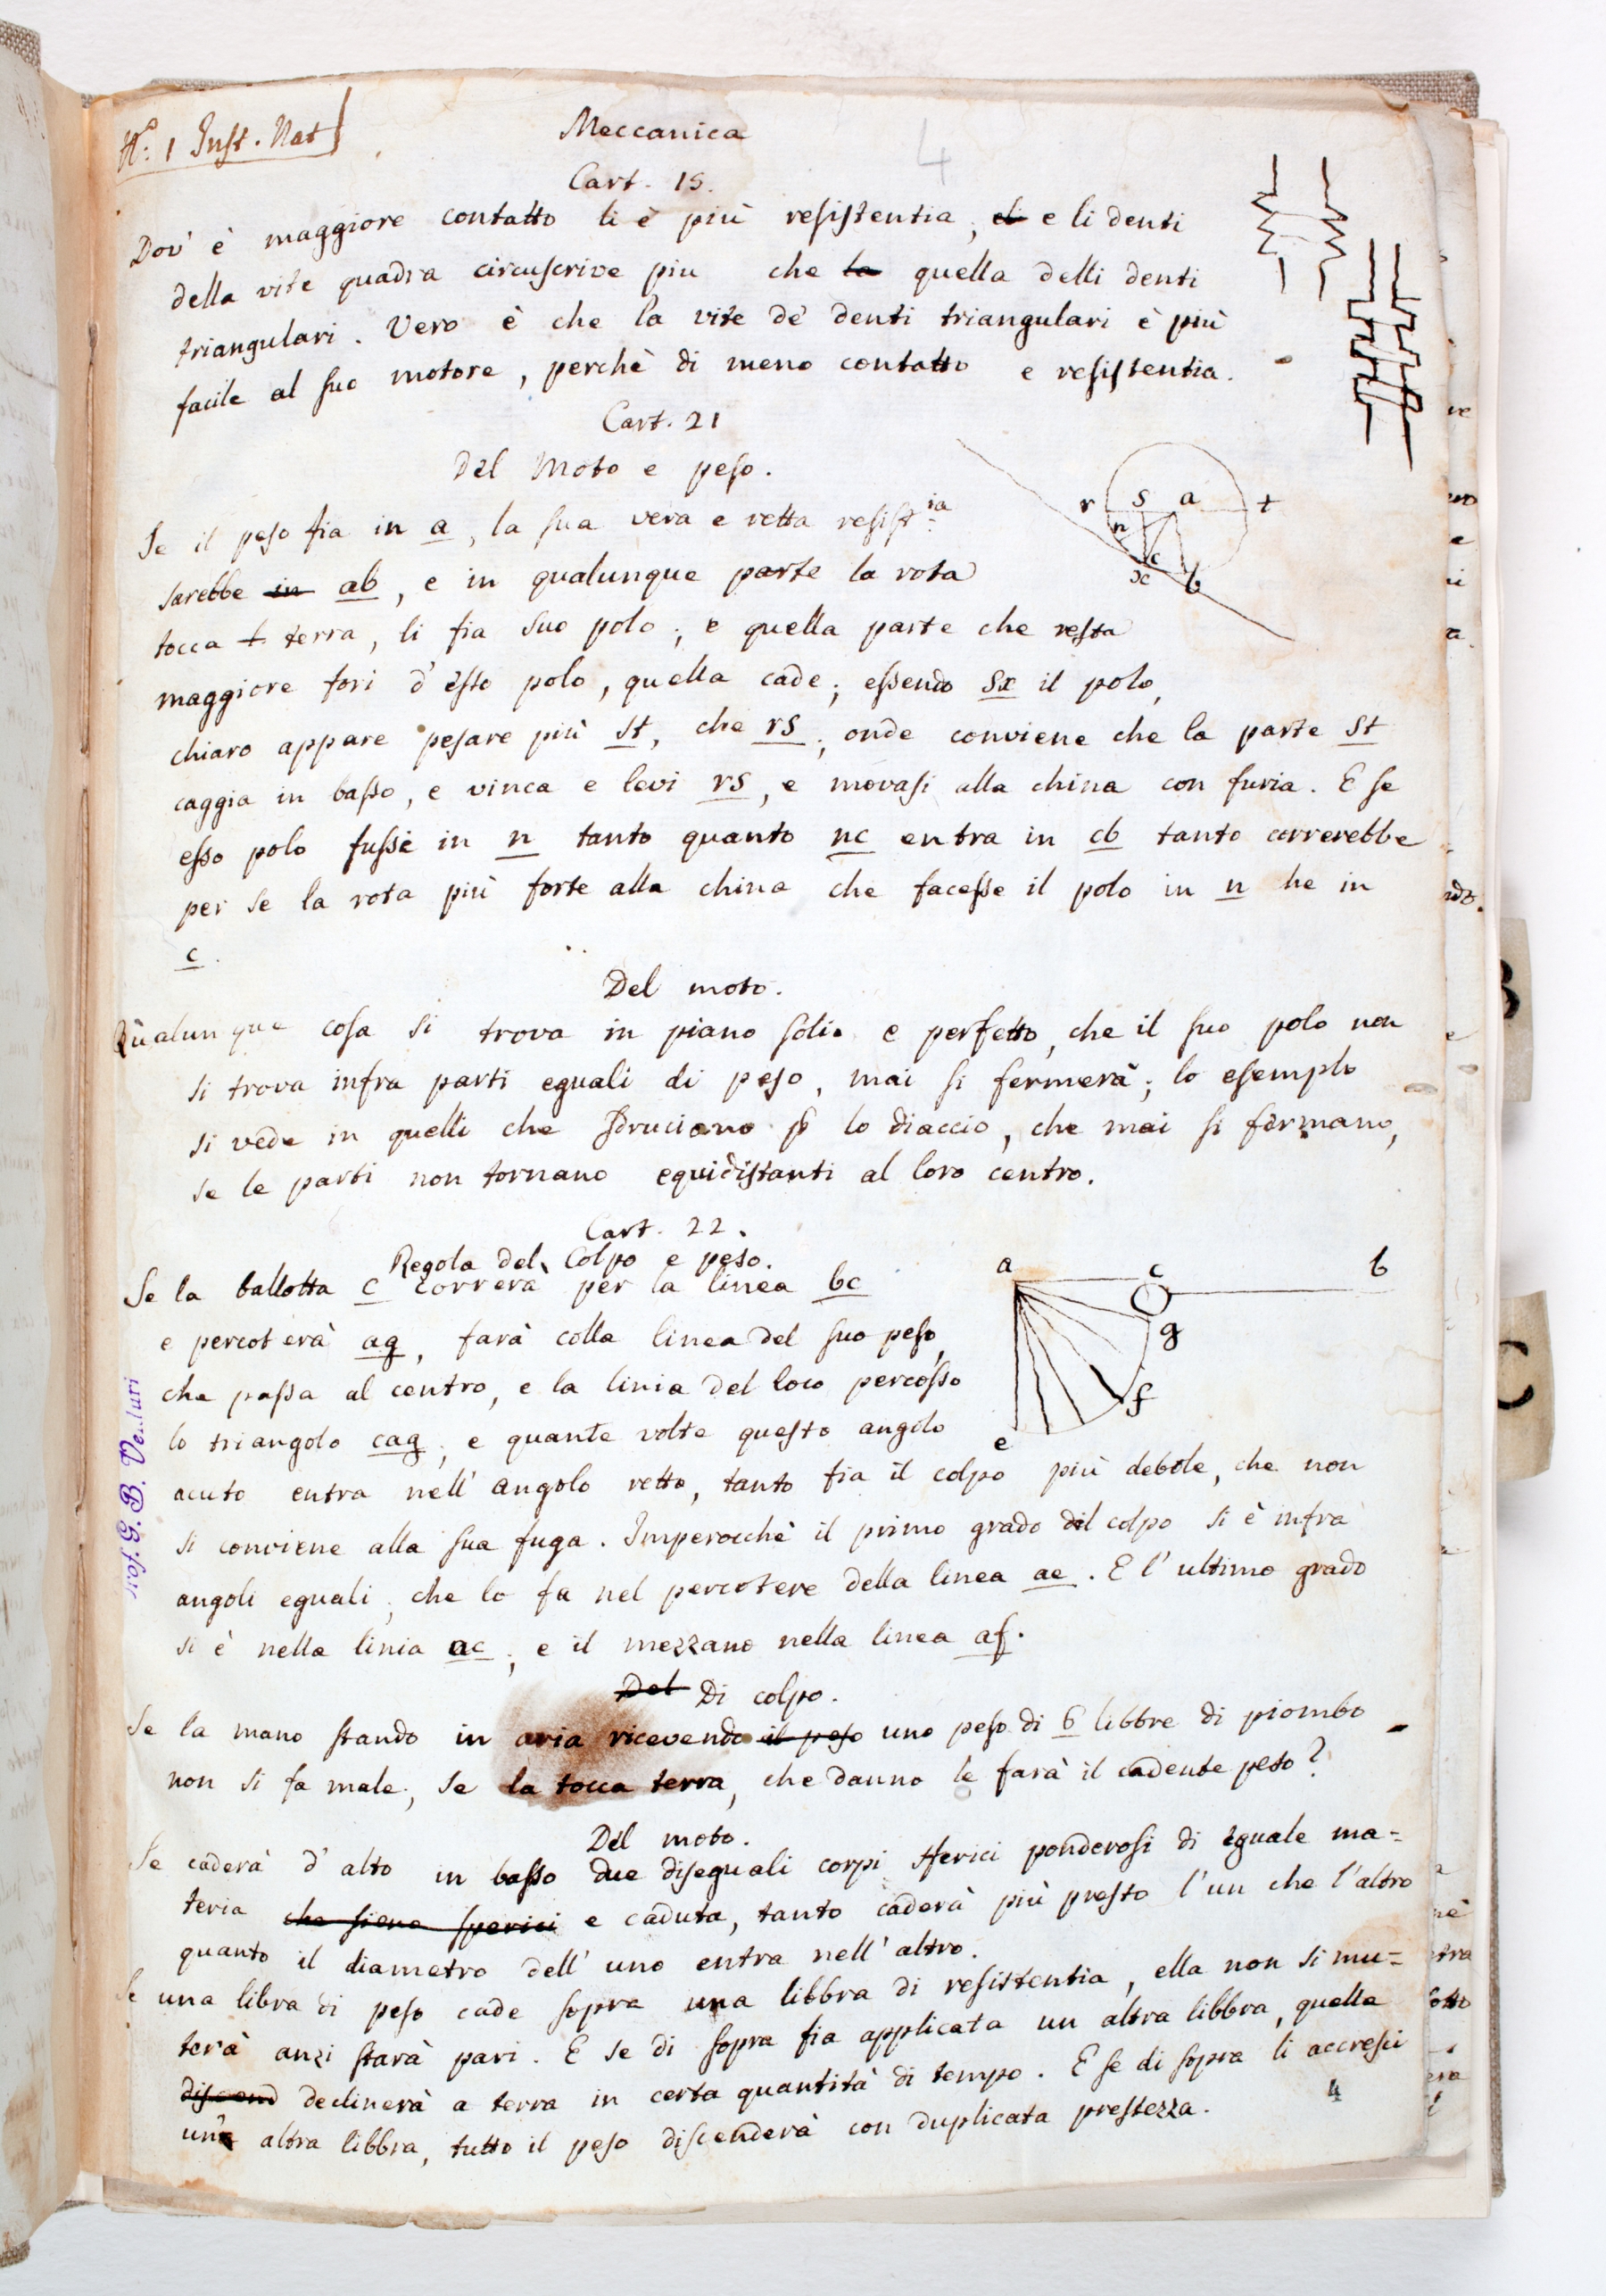 N.° 1 Inst. Nat
Meccanica
4
Cart. 15.
Dov' è maggiore contatto li è più resistentia; el e li denti
della vite quadra circuscrive piu che la quella delli denti
triangulari. Vero è che la vite de' denti triangulari è più
facile al suo motore, perchè di meno contatto e resistentia.
Cart. 21
Del Moto e peso.
Se il peso fia in a, la sua vera e retta resist:ia
sarebbe in ab, e in qualunque parte la rota
tocca t terra, li fia suo polo; e quella parte che resta
maggiore fori d'esso polo, quella cade; essendo sx il polo,
chiaro appare pesare più st, che rs; onde conviene che la parte st
caggia in basso, e vinca e levi rs, e movasi alla china con furia. E se
esso polo fussi in n tanto quanto nc entra in cb tanto correrebbe
per se la rota più forte alla china che facesse il polo in n he in
c.
r s a t
n c
x b
Del moto.
Qualunque cosa si trova in piano solio e perfetto, che il suo polo non
si trova infra parti eguali di peso, mai si fermerà; lo esemplo
si vede in quelli che sdruciano p lo diaccio, che mai si fermano,
se le parti non tornano equidistanti al loro centro.
Cart. 22.
Regola del Colpo e peso.
Se la ballotta c correrà per la linea bc
e percoterà ag, farà colla linea del suo peso,
che passa al centro, e la linia del loco percosso
lo triangolo cag; e quante volte questo angolo
acuto entra nell' angolo retto, tanto fia il colpo più debole, che non
si conviene alla sua fuga. Imperocchè il primo grado del colpo si è infra
angoli eguali; che lo fa nel percotere della linea ae. E l'ultimo grado
si è nella linia ac; e il mezzano nella linea af.
a c b
g
f
e
Prof. G. B. Venturi
Del Di colpo.
Se la mano stando in aria ricevendo il peso uno peso di 6 libbre di piombo
non si fa male; se la tocca terra, che danno le farà il cadente peso?
Del moto.
Se caderà d'alto in basso due diseguali corpi sferici ponderosi di eguale ma=
teria che sieno sperici e caduta, tanto caderà più presto l'un che l'altro
quanto il diametro dell' uno entra nell' altro.
Se una libra di peso cade sopra una libbra di resistentia, ella non si mu=
terà anzi starà pari. E se di sopra fia applicata un altra libbra, quella
discend declinerà a terra in certa quantità di tempo. E se di sopra li accresci
una altra libbra, tutto il peso discenderà con duplicata prestezza.
4